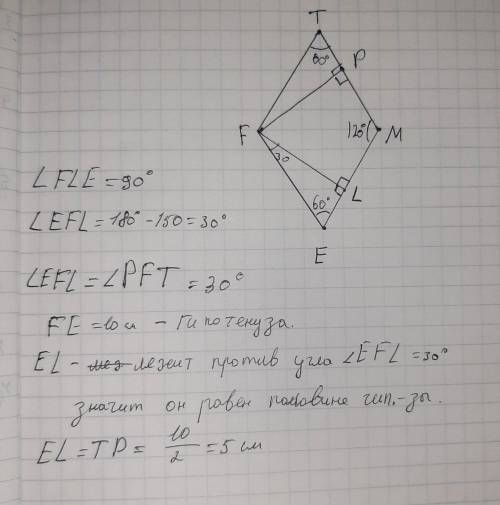 T
60°
P
F
120°
M
30
60°
L
E
∠FLE = 90°
∠EFL = 180° - 150 = 30°
∠EFL = ∠PFT = 30°
FE = 10 см - Гипотенуза.
EL - лежит против угла ∠EFL = 30°
значит он равен половине гип.-зы.
EL = TP = 10/2 = 5 см